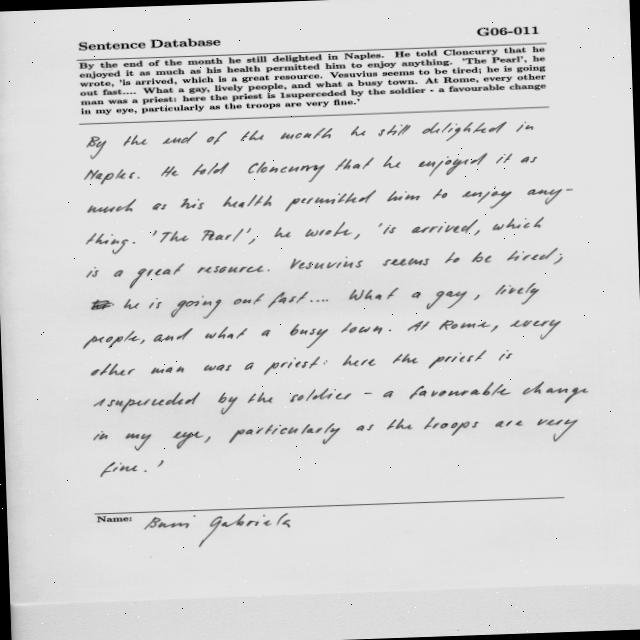 Sentence Database
G06-011
By the end of the month he still delighted in Naples. He told Cloncurry that he
enjoyed it as much as his health permitted him to enjoy anything. 'The Pearl', he
wrote, 'is arrived, which is a great resource. Vesuvius seems to be tired; he is going
out fast.... What a gay, lively people, and what a busy town. At Rome, every other
man was a priest: here the priest is 1superceded by the soldier - a favourable change
in my eye, particularly as the troops are very fine.'
By the end of the month he still delighted in
Naples. He told Cloncurry that he enjoyed it as
much as his health permitted him to enjoy any-
thing. 'The Pearl', he wrote, 'is arrived, which
is a great resource. Vesuvius seems to be tired;
he is going out fast.... What a gay, lively
people, and what a busy town. At Rome, every
other man was a priest: here the priest is
1superceded by the soldier - a favourable change
in my eye, particularly as the troops are very
fine.'
Name:
Gabriela